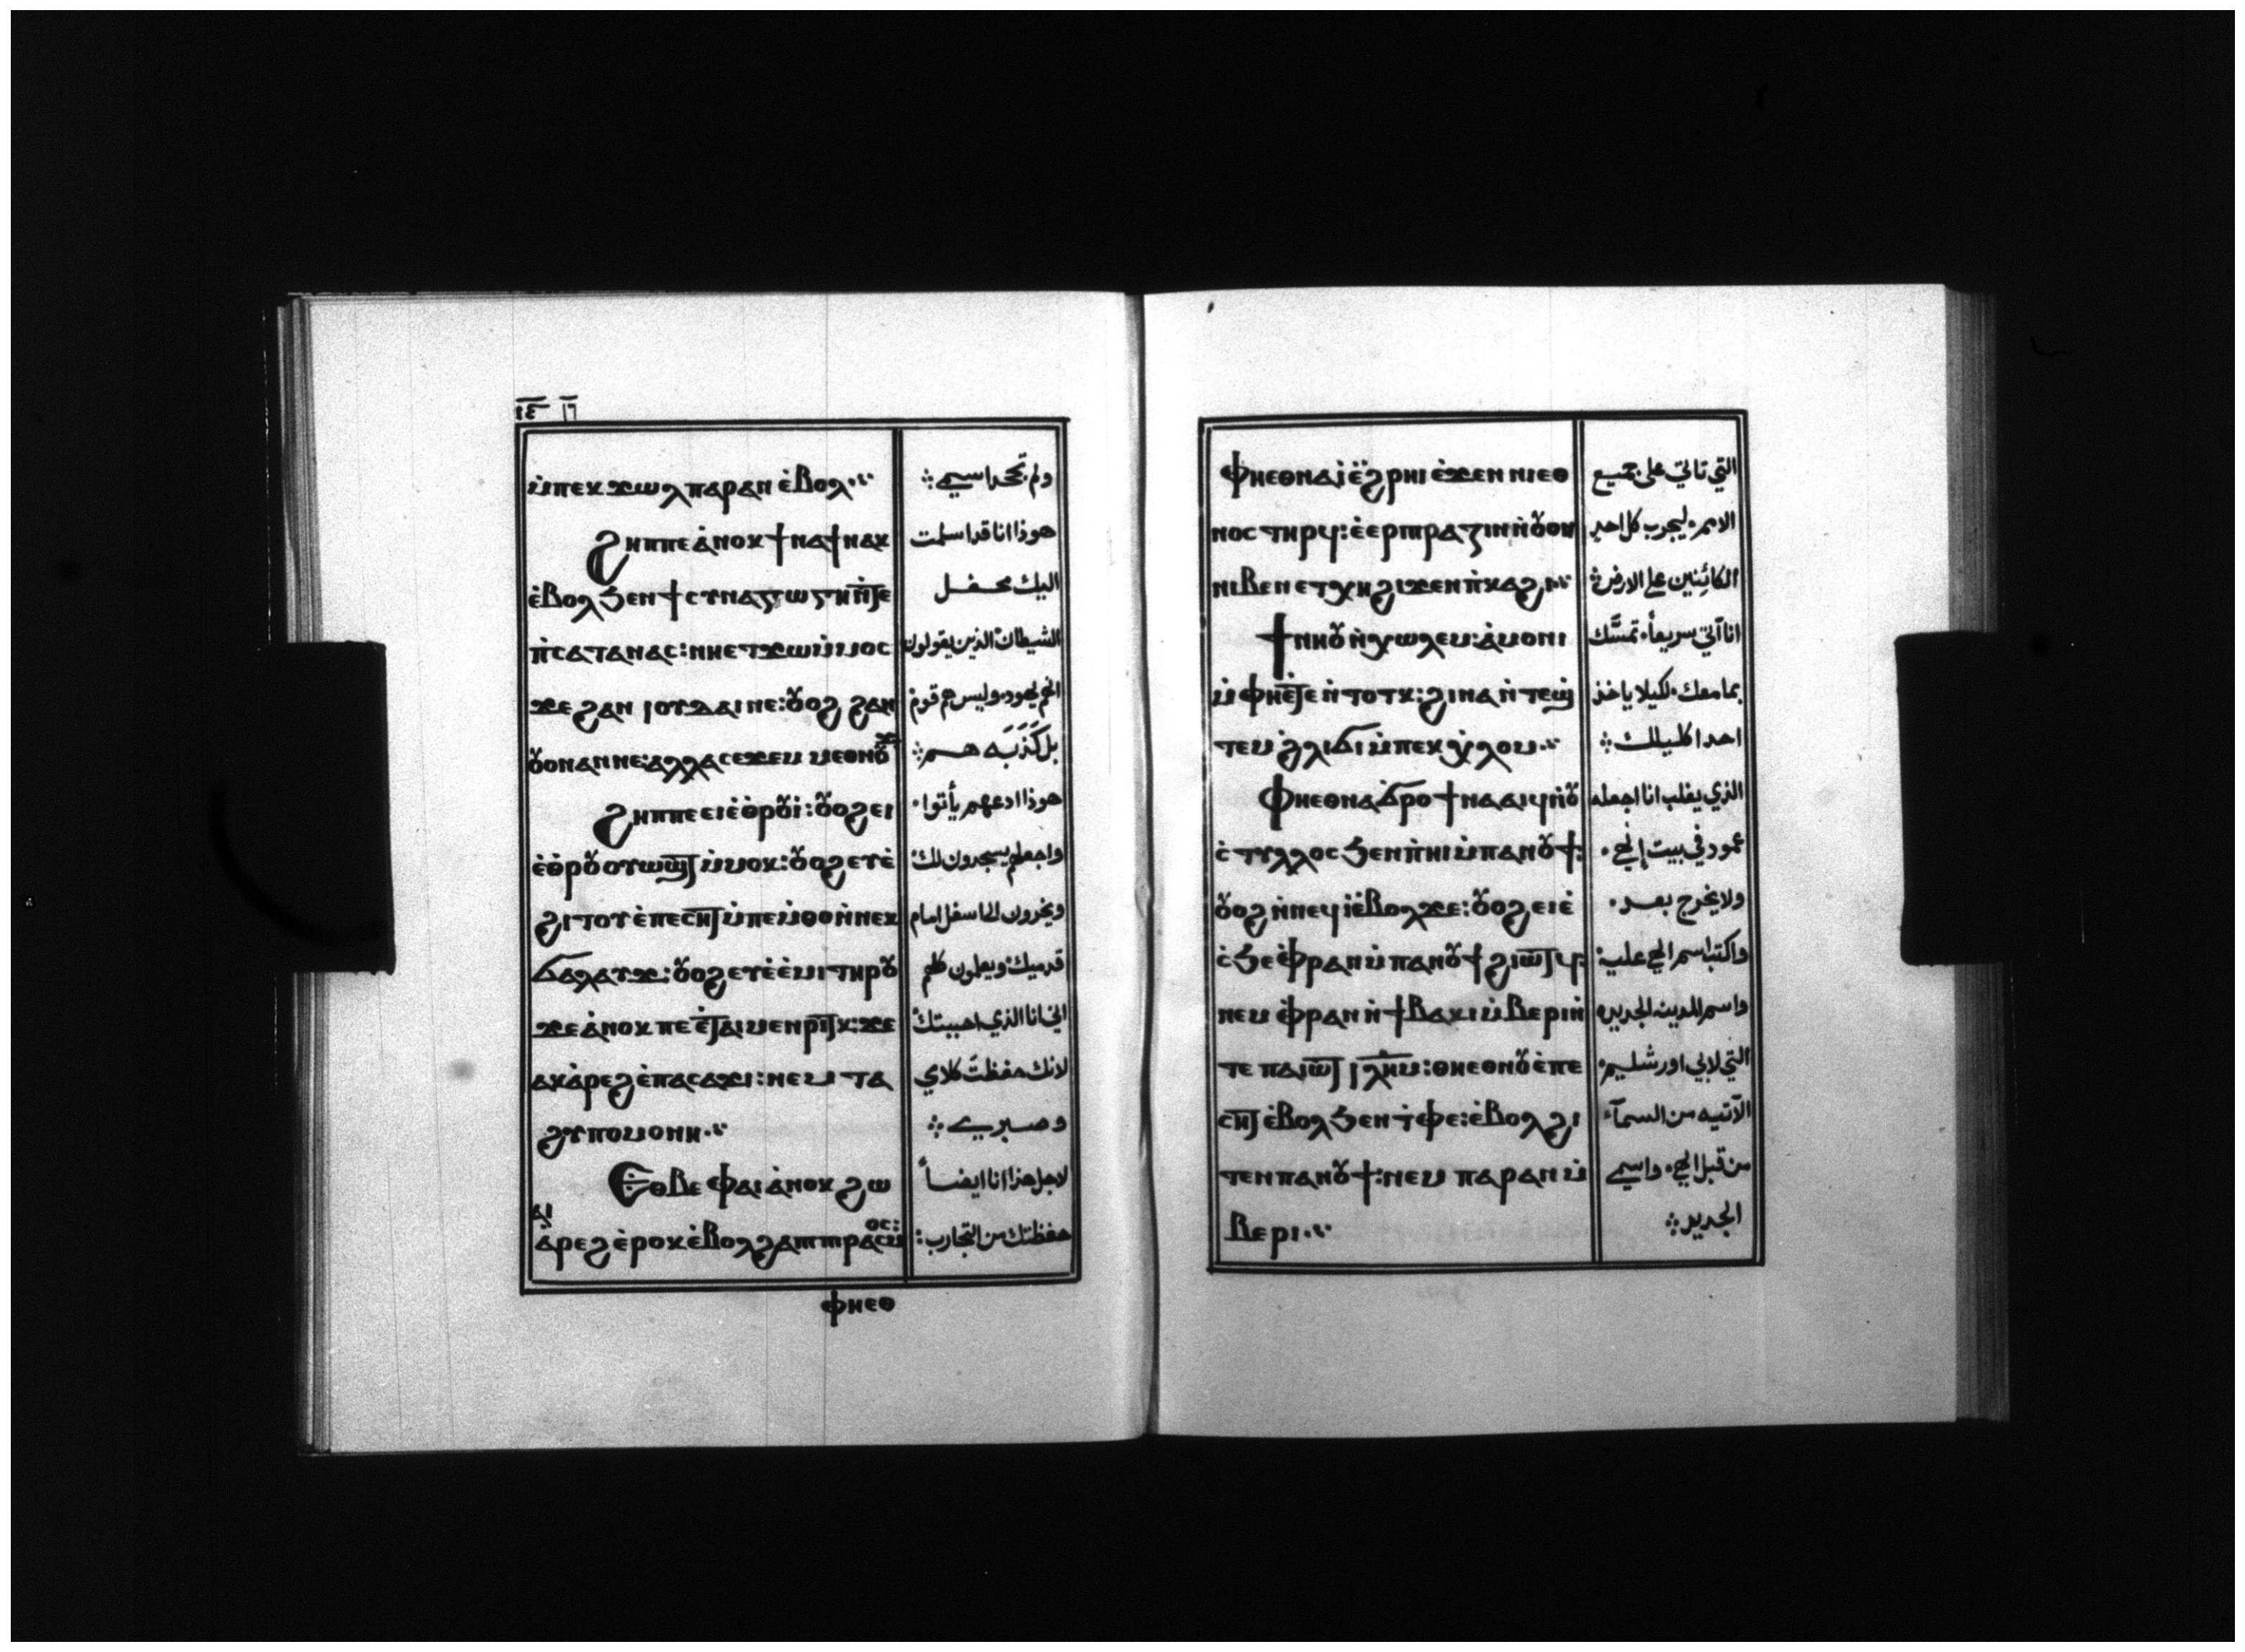 ١٤ ١٦
ⲙ̇ⲡⲉⲕϫⲱⲗⲡⲁⲣⲁⲛ ⲉ̇ⲃⲟⲗ
ϩⲏⲡⲡⲉ ⲁ̇ⲛⲟⲕ ϯⲛⲁϯⲛⲁⲕ
ⲉ̇ⲃⲟⲗϧⲉⲛϯⲥⲩⲛⲁⲅⲱⲅⲏⲛ̇ⲧⲉ
ⲡ̇ⲥⲁⲧⲁⲛⲁⲥ: ⲛⲏⲉⲧϫⲱⲙ̇ⲙⲟⲥ
ϫⲉ ϩⲁⲛ ⲓⲟⲩⲇⲁⲓ ⲛⲉ: ⲟⲩⲟϩ ϩⲁⲛ
ⲟⲩⲟⲛ ⲁⲛ ⲛⲉ: ⲁⲗⲗⲁ ⲥⲉϫⲉⲙ ⲙⲉⲑⲛⲟⲩϫ
ϩⲏⲡⲡⲉ ⲉⲓⲉ̇ⲑⲣⲟⲩⲓ̇: ⲟⲩⲟϩ ⲉⲓ
ⲉ̇ⲑⲣⲟⲩⲟⲩⲱϣⲧ ⲙ̇ⲙⲟⲕ: ⲟⲩⲟϩ ⲉⲩⲉ̇
ϩⲓⲧⲟⲩ ⲉ̇ⲡⲉⲥⲏⲧ ⲙ̇ⲡⲉⲙ̇ⲑⲟ ⲛ̇ⲛⲉⲕ
ϭⲁⲗⲁⲩϫ: ⲟⲩⲟϩ ⲉⲩⲉ̇ⲉ̇ⲙⲓ ⲧⲏⲣⲟⲩ
ϫⲉ ⲁ̇ⲛⲟⲕ ⲡⲉ ⲉ̇ⲧⲁⲓⲙⲉⲛⲣⲓⲧⲕ: ϫⲉ
ⲁⲕⲁ̇ⲣⲉϩ ⲉ̇ⲡⲁⲥⲁϫⲓ: ⲛⲉⲙ ⲧⲁ
ϩⲩⲡⲟⲙⲟⲛⲏ
ⲉⲑⲃⲉ ⲫⲁⲓ ⲁ̇ⲛⲟⲕ ϩⲱ
ⲁⲓ
ⲁ̇ⲣⲉϩ ⲉ̇ⲣⲟⲕ ⲉ̇ⲃⲟⲗϩⲁⲡⲓⲡⲓⲣⲁⲥⲙⲟⲥ:
ⲫⲏⲉⲑ
ولم تجحد اسمي
هوذا انا قد اسلمت
اليك محفل
الشيطان الذين يقولون
انهم يهود وليس هم قوم
بل كَذَبَه هم
هوذا ادعهم يأتوا
واجعلهم يسجدون لك
ويخرون الى اسفل امام
قدميك ويعلمون كلهم
اني انا الذي احببتك
لانك حفظت كلامي
وصبري
لاجل هذا انا ايضاً
حفظتك من التجارب:
ⲫⲏⲉⲑⲛⲁⲓ̇ ⲉ̇ϩⲣⲏⲓ ⲉ̇ϫⲉⲛ ⲛⲓⲉⲑ
ⲛⲟⲥ ⲧⲏⲣϥ: ⲉ̇ⲉⲣⲡⲓⲣⲁⲍⲓⲛ ⲛ̇ⲟⲩⲟⲛ
ⲛⲓⲃⲉⲛ ⲉⲧⲭⲏ ϩⲓϫⲉⲛ ⲡ̇ⲕⲁϩⲓ
ϯⲛⲏⲟⲩ ⲛ̇ⲭⲱⲗⲉⲙ: ⲁ̇ⲙⲟⲛⲓ
ⲙ̇ⲫⲏⲉ̇ⲧⲉⲛ̇ⲧⲟⲧⲕ: ϩⲓⲛⲁ ⲛ̇ⲧⲉϣ̇
ⲧⲉⲙ ϩ̇ⲗⲓ ϭⲓ ⲙ̇ⲡⲉⲕⲭ̇ⲗⲟⲙ
ⲫⲏⲉⲑⲛⲁϭⲣⲟ ϯⲛⲁⲁⲓϥ ⲛ̇ⲟⲩ
ⲥ̇ⲧⲩⲗⲗⲟⲥ ϧⲉⲛ ⲡ̇ⲏⲓ ⲙ̇ⲡⲁⲛⲟⲩϯ:
ⲟⲩⲟϩ ⲛ̇ⲛⲉϥⲓ̇ ⲉ̇ⲃⲟⲗ ϫⲉ: ⲟⲩⲟϩ ⲉⲓⲉ̇
ⲥ̇ϧⲉ ⲫ̇ⲣⲁⲛ ⲙ̇ⲡⲁⲛⲟⲩϯ ϩⲓⲱⲧϥ:
ⲛⲉⲙ ⲫ̇ⲣⲁⲛ ⲛ̇ϯⲃⲁⲕⲓ ⲙ̇ⲃⲉⲣⲓ ⲛ̇
ⲧⲉ ⲡⲁⲓⲱⲧ ⲓⲗ̅ⲏ̅ⲙ̅: ⲑⲏⲉⲑⲛⲏⲟⲩ ⲉ̇ⲡⲉ
ⲥⲏⲧ ⲉ̇ⲃⲟⲗϧⲉⲛ ⲧ̇ⲫⲉ: ⲉ̇ⲃⲟⲗϩⲓ
ⲧⲉⲛ ⲡⲁⲛⲟⲩϯ: ⲛⲉⲙ ⲡⲁⲣⲁⲛ ⲙ̇
ⲃⲉⲣⲓ
التي تاتي على جميع
الامم ليجرب كل احد
الكائنين على الارض
انا آتي سريعاً تمسَّك
بما معك لكيلا ياخذ
احد اكليلك
الذي يغلب انا اجعله
عمود في بيت إلهي
ولا يخرج بعد
واكتب اسم الهي عليه:
واسم المدينه الجديده
التي لابي اورشليم
الآتيه من السمآء
من قبل الهي واسمي
الجديد